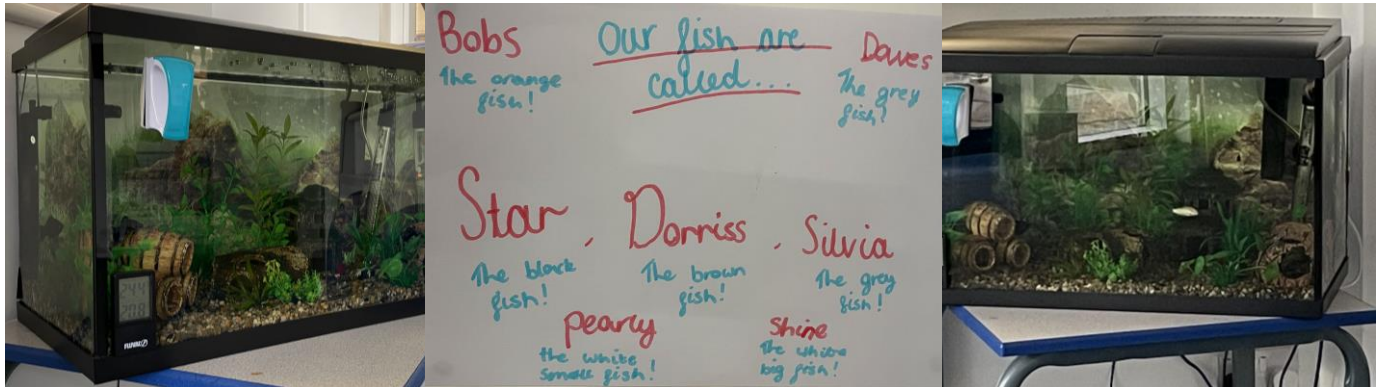 Bobs
The orange
fish!
Our fish are
called...
Daves
The grey
fish!
Star, Dorriss, Silvia
The black
fish!
The brown
fish!
The grey
fish!
pearly
the white
small fish!
Shine
The white
big fish!
24.4
27.8
FLUVAL